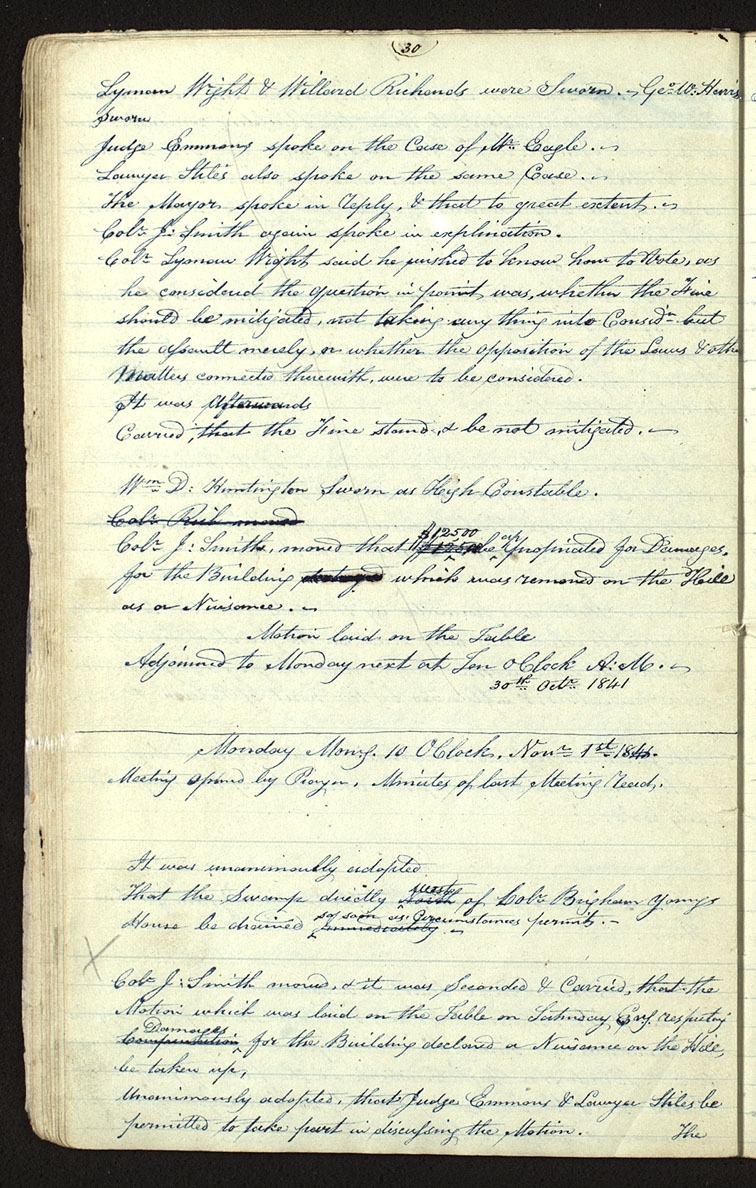 30
Lyman Wight & Willard Richards were Sworn. Geo. W. Harris
Sworn
Judge Emmons spoke on the Case of Mr. Eagle.
Lawyer Stiles also spoke on the same Case.
The Mayor spoke in reply, & that to great extent.
Colr. J: Smith again spoke in explination.
Colr. Lyman Wight said he wished to know how to Vote, as
he considered the question in point was, whether the Fine
should be mitigated, not taking any thing into Considn. but
the assault merely, or whether the opposition of the Laws & othe
Matters connected therewith, were to be considered.
It was afterwards
Carried, that the Fine stand, & be not mitigated.
Wm. D: Huntington Sworn as High Constable.
Colr. Rich moved
Colr. J: Smith, moved that $12500 be appropriated for Damages,
for the Building destroyed which was removed on the Hill
as a Nuisance.
Motion laid on the Table
Adjourned to Monday next at Ten o'Clock A: M.
30th. Octr. 1841
Monday Mong. 10 O'Clock, Novr. 1st. 1841.
Meeting opened by Prayer, Minutes of last Meeting read.
It was unanimously adopted
That the Swamp directly North west of Colr. Brigham Youngs
House be drained immediately so soon as Circumstances permit.
Colr. J: Smith moved, & it was Seconded & Carried, that the
Motion which was laid on the Table on Saturday Evg. respecting
Compensation Damages for the Building declared a Nuisance on the Hill,
be taken up,
Unanimously adopted, that Judge Emmons & Lawyer Stiles be
permitted to take part in discussing the Motion. The